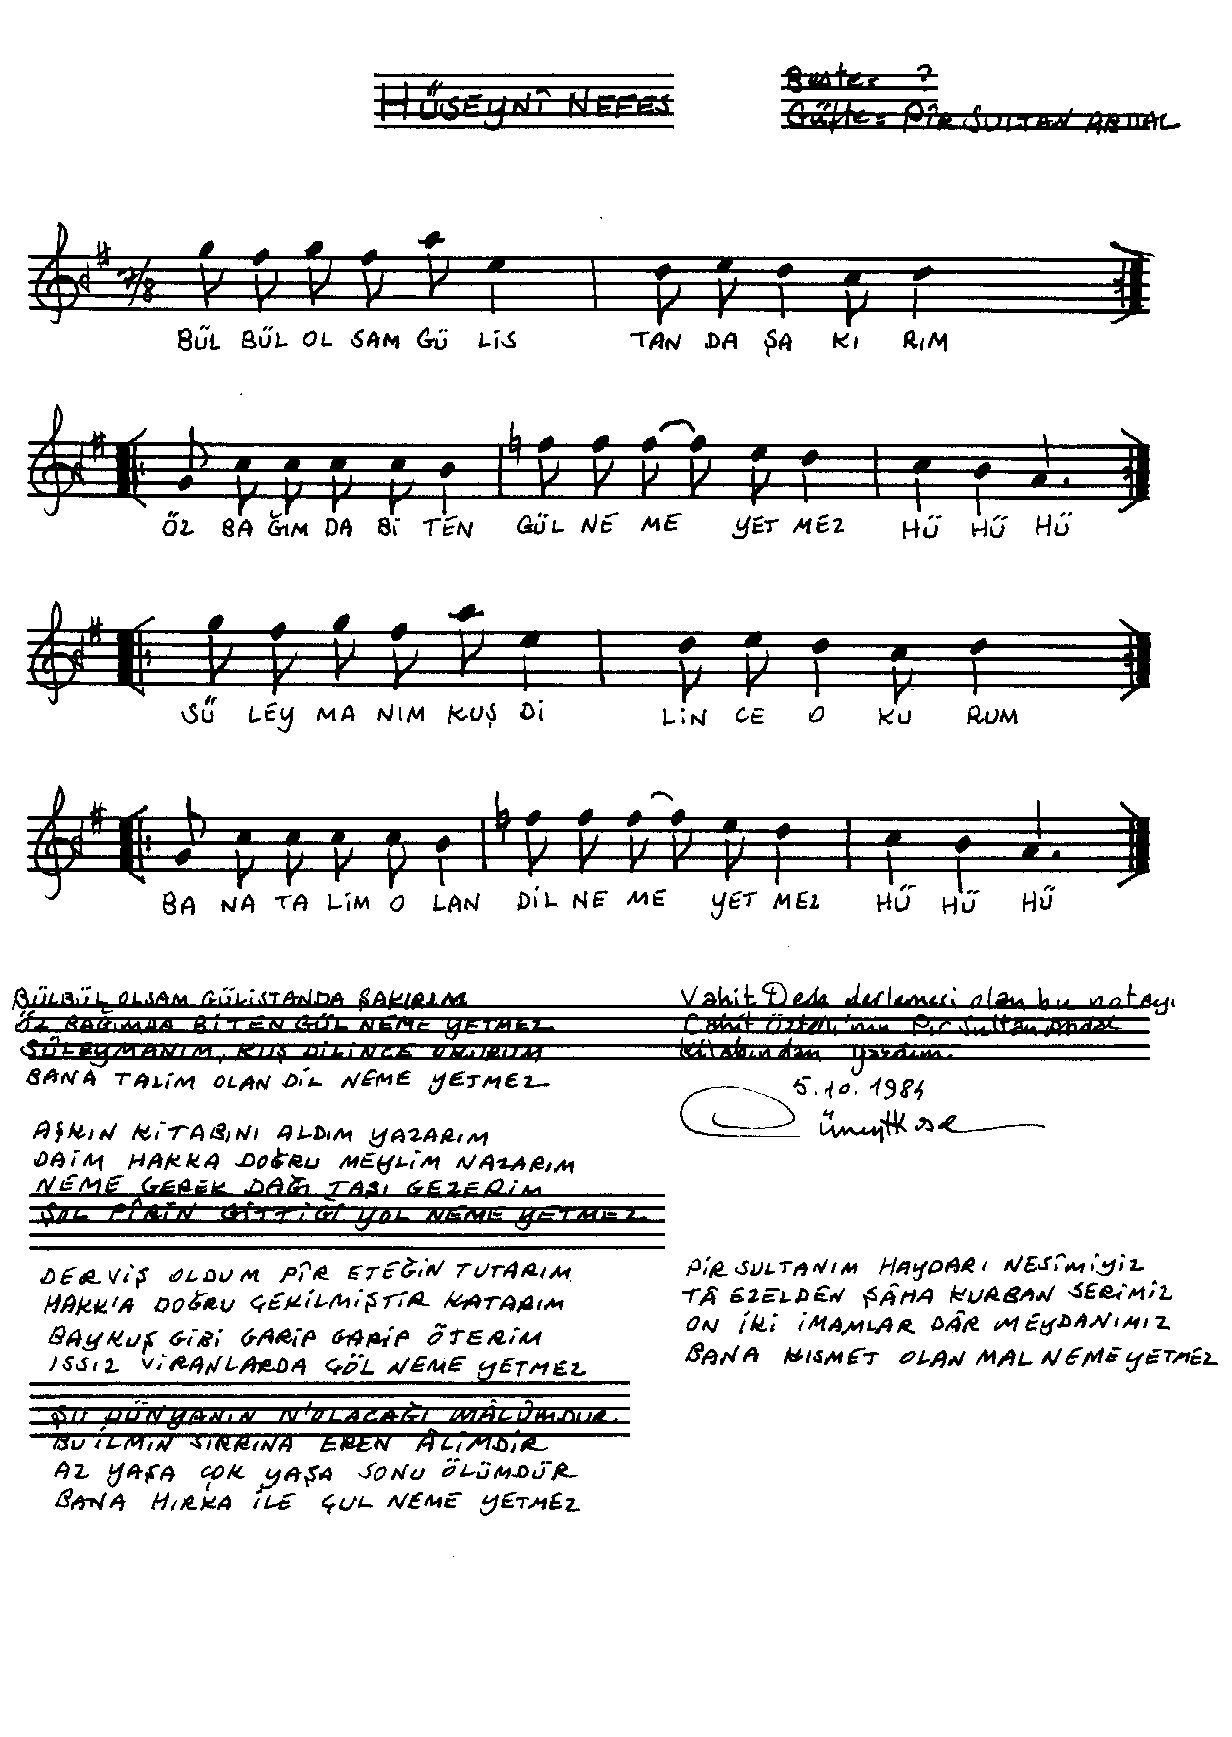 HÜSEYNÎ NEFES
Beste: ?
Güfte: PÎR SULTAN ABDAL
7/8
BÜL BÜL OL SAM GÜ LİS TAN DA ŞA KI RIM
ÖZ BA ĞIM DA Bİ TEN GÜL NE ME YET MEZ HÜ HÜ HÜ
SÜ LEY MA NIM KUŞ Dİ LİN CE O KU RUM
BA NA TA LİM O LAN DİL NE ME YET MEZ HÜ HÜ HÜ
BÜLBÜL OLSAM GÜLİSTANDA ŞAKIRIM
ÖZ BAĞIMDA BİTEN GÜL NEME YETMEZ
SÜLEYMANIM, KUŞ DİLİNCE OKURUM
BANA TALİM OLAN DİL NEME YETMEZ
AŞKIN KİTABINI ALDIM YAZARIM
DAİM HAKKA DOĞRU MEYLİM NAZARIM
NEME GEREK DAĞI TAŞI GEZERİM
ŞOL PÎRİN GİTTİĞİ YOL NEME YETMEZ
DERVİŞ OLDUM PÎR ETEĞİN TUTARIM
HAKK'A DOĞRU ÇEKİLMİŞTİR KATARIM
BAYKUŞ GİBİ GARİP GARİP ÖTERİM
ISSIZ VİRANLARDA GÖL NEME YETMEZ
ŞU DÜNYANIN N'OLACAĞI MÂLÛMDUR.
BU İLMİN SIRRINA EREN ÂLİMDİR
AZ YAŞA ÇOK YAŞA SONU ÖLÜMDÜR
BANA HIRKA İLE ÇUL NEME YETMEZ
Vahit Dede derlemesi olan bu notayı
Cahit Öztelli'nin Pir Sultan Abdal
kitabından yazdım.
5.10.1984
PİR SULTANIM HAYDARI NESÎMİYİZ
TÂ EZELDEN ŞÂHA KURBAN SERİMİZ
ON İKİ İMAMLAR DÂR MEYDANIMIZ
BANA KISMET OLAN MAL NEME YETMEZ